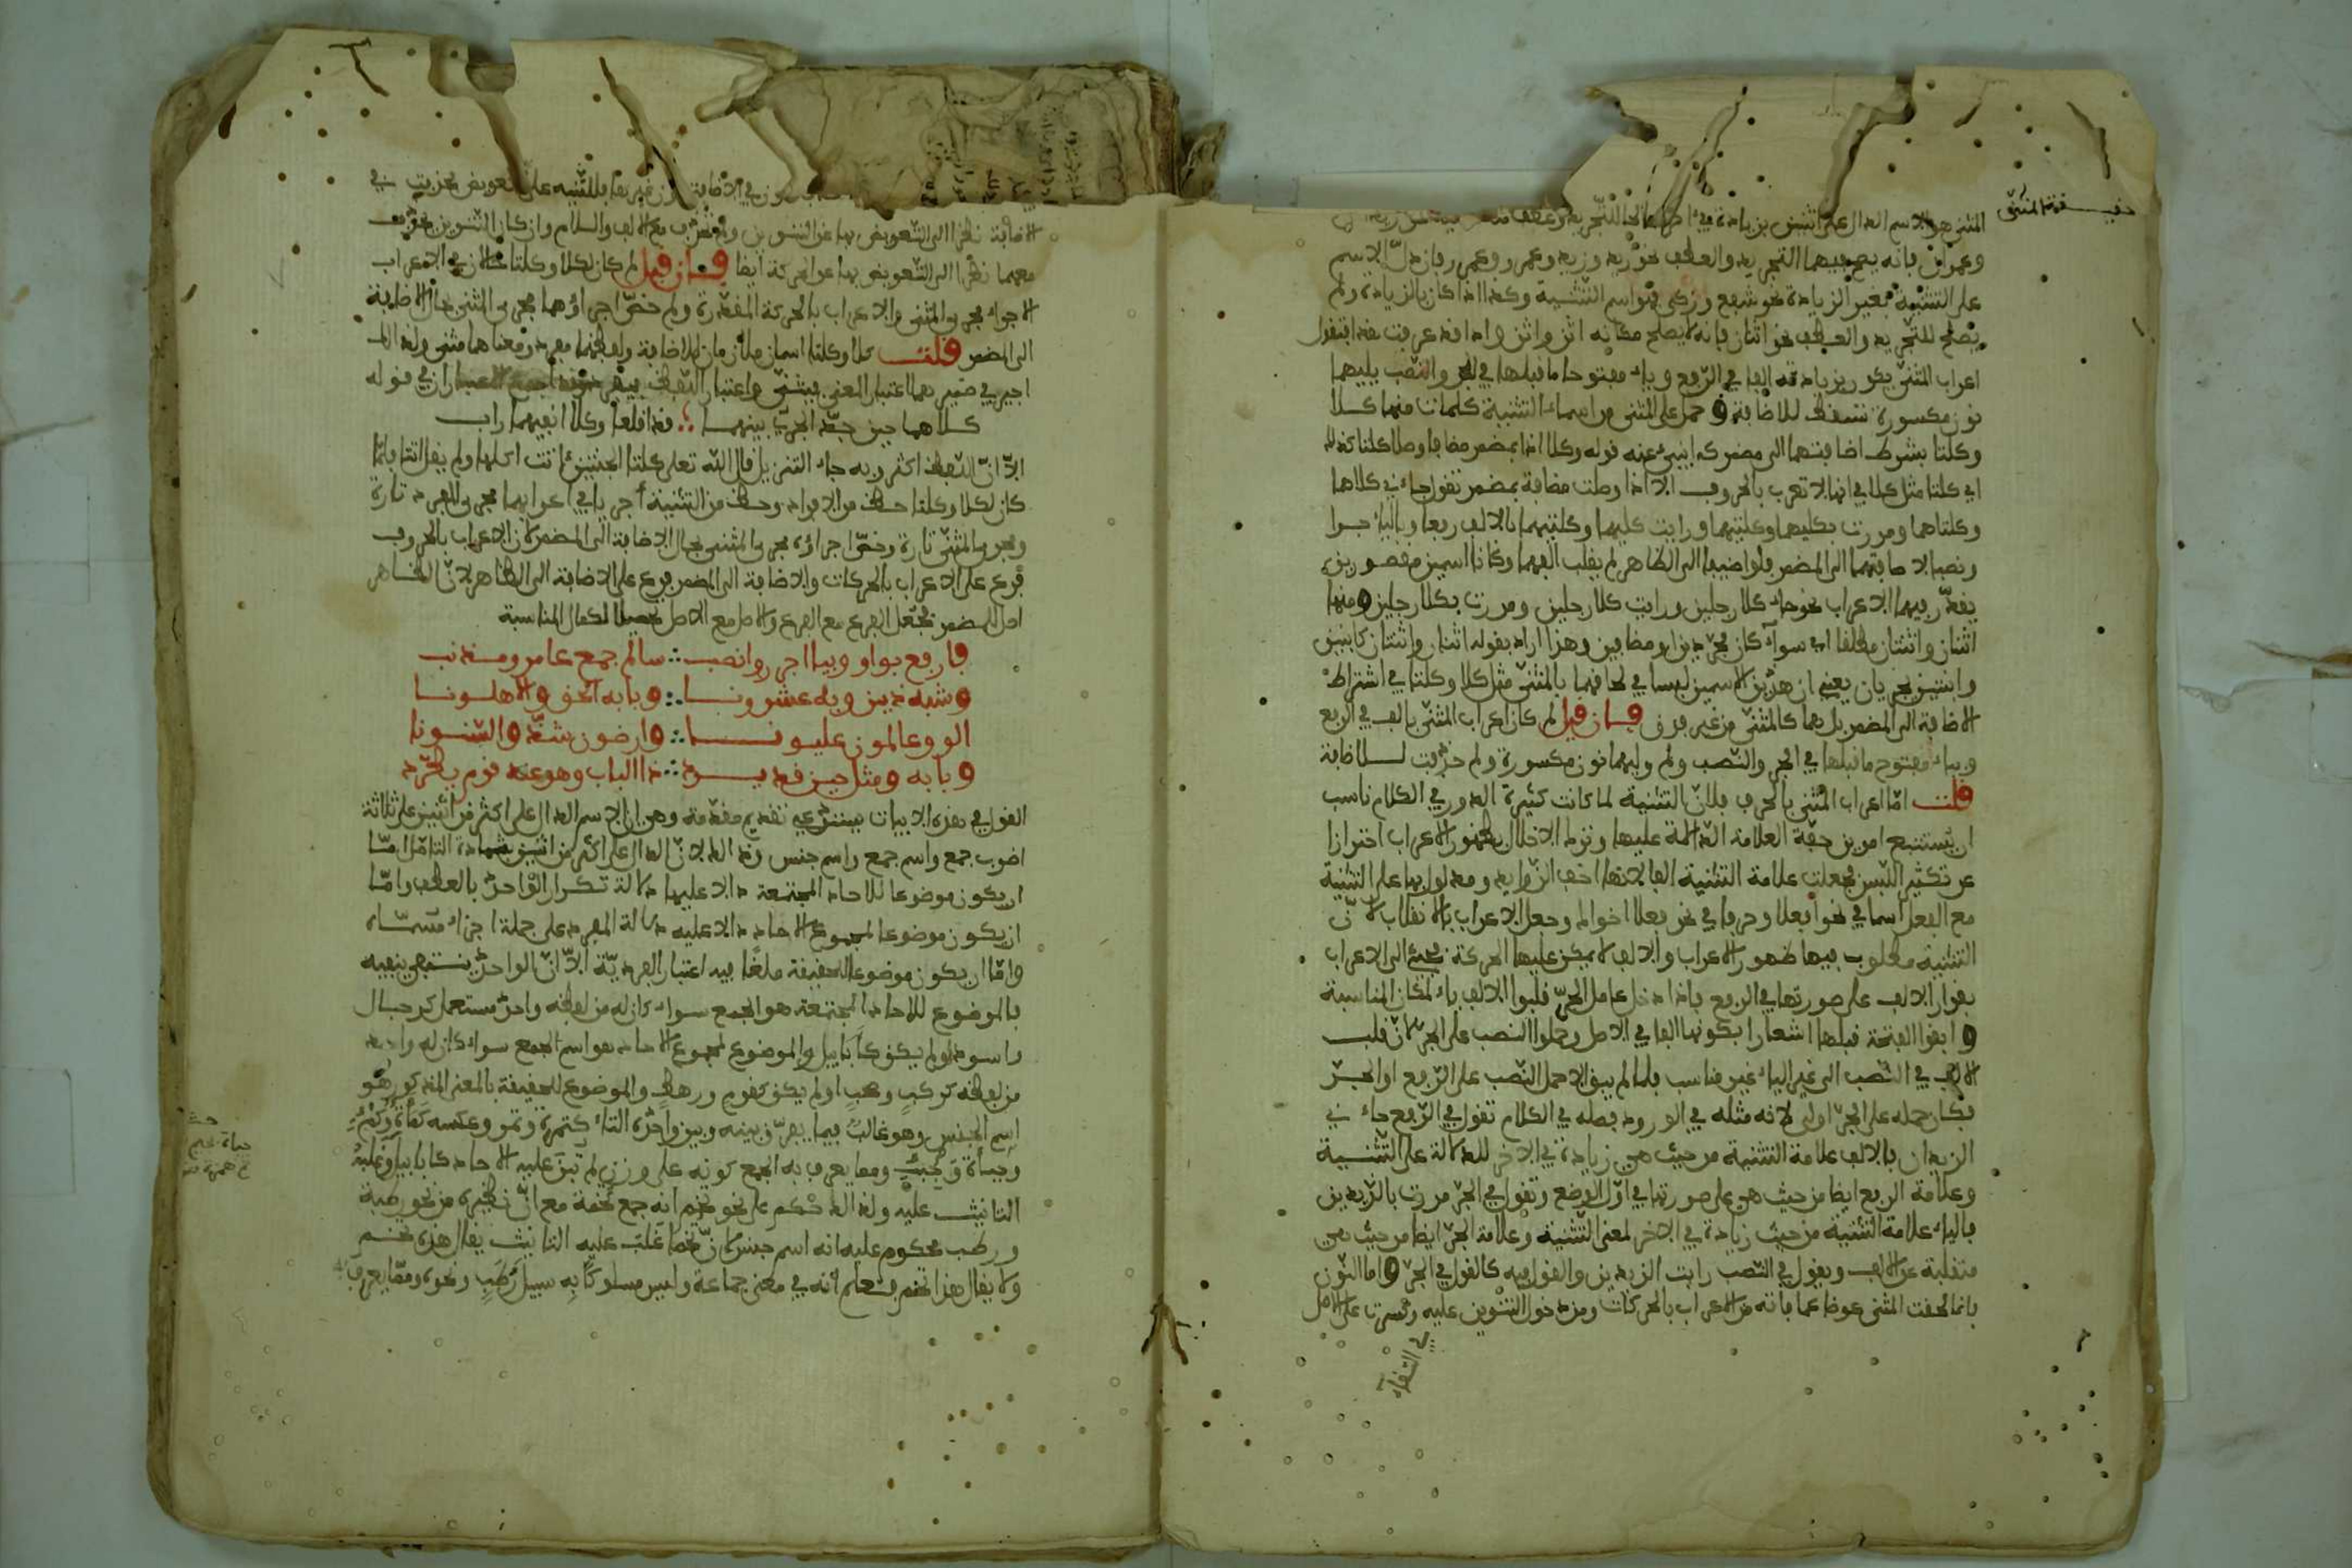 حقيـــقة المثنى
المثنى هو الاسم الدال على اثنين بزيادة في اخره صالحا للتجريد وعطف مثله
وعمران فانه يصح فيهما التجريد والعطف نحو زيد وزيد وعمرو وعمرو فان دل الاسم
على التثنية بغير الزيادة نحو شفع وزكى فهو اسم للتثنية وكذا اذا كان بالزيادة ولم
يصلح للتجريد والعطف نحو اثنان فانه لا يصلح مكانه اثن واثن واذا قد عرفت هذا فنقول
اعراب المثنى يكون بزيادة الف في الرفع وياء مفتوحا ما قبلها في الجر والنصب يليهما
نون مكسورة تسقط للاضافة وحمل على المثنى من اسماء التثنية كلمات منها كلا
وكلتا بشرط اضافتهما الى مضمر كما ينبئ عنه قوله وكلا اذا بمضمر مضافا وصلا كلتا كذاك
اي كلتا مثل كلا في انها لا تعرب بالحروف الا اذا وصلت مضافة بمضمر تقول جاءني كلاهما
وكلتاهما ومررت بكليهما وكلتيهما ورايت كليهما وكلتيهما بالالف رفعا وبالياء جرا
ونصبا لاضافتهما الى المضمر فلو اضيفا الى الظاهر لم يقلب الفهما وكانا اسمين مقصورين
يقدر فيهما الاعراب نحو جاء كلا رجلين ورايت كلا رجلين ومررت بكلا رجلين ومنها
اثنان واثنتان مطلقا اي سواء كان مجردين او مضافين وهذا اراد بقوله اثنان واثنتان كابنين
وابنتين يجريان يعني ان هذين الاسمين ليسا في لحاقهما بالمثنى مثل كلا وكلتا في اشتراط
الاضافة الى المضمر بل هما كالمثنى من غير فرق فان قيل لم كان اعراب المثنى بالف في الرفع
وبياء مفتوح ما قبلها في الجر والنصب ولم وليهما نون مكسورة ولم حذفت للاضافة
قلت اما اعراب المثنى بالحرف فلان التثنية لما كانت كثيرة الدور في الكلام ناسب
ان يستتبع امرين خفة العلامة الدالة عليها وترك الاخلال بظهور الاعراب احترازا
عن تكثير اللبس فجعلت علامة التثنية الفا لانها اخف الزوايد ومدلول بها على التثنية
مع الفعل اسما في نحو افعلا وحرفا في نحو فعلا اخواك وجعل الاعراب بالانقلاب لان
التثنية مطلوب فيها ظهور الاعراب والالف لا يمكن عليها الحركة فلجئ الى الاعراب
بقرار الالف على صورتها في الرفع فاذا دخل عامل الجر قلبوا الالف ياء لمكان المناسبة
وابقوا الفتحة قبلها اشعارا بكونها الفا في الاصل وحملوا النصب على الجر لان قلب
الالف في النصب الى غير الياء غير مناسب فلما لم يبق الا حمل النصب على الرفع او الجر
فكان حمله على الجر اولى لانه مثله في الورود فصلة في الكلام تقول في الرفع جاءني
الزيدان فالالف علامة التثنية من حيث هي زيادة في الاخر للدلالة على التثنية
وعلامة الرفع ايضا من حيث هي على صورتها في اول الوضع وتقول في الجر مررت بالزيدين
فالياء علامة التثنية من حيث زيادة في الاخر لمعنى التثنية وعلامة الجر ايضا من حيث هي
منقلبة عن الالف وتقول في النصب رايت الزيدين والقول فيه كالقول في الجر واما النون
فانما لحقت المثنى عوضا عما فاته من الاعراب بالحركات ومن دخول التنوين عليه وكسرت على الاصل
في التقاء
في الاضافة دون غيرها للتنبيه على التعويض فحذفت في
الاضافة نظرا الى التعويض بها عن التنوين ولم تحذف مع الالف واللام وان كان التنوين يحذف
معهما نظرا الى التعويض بها عن الحركة ايضا فان قيل لم كان لكلا وكلتا حالان في الاعراب
الاجراء مجرى المثنى والاعراب بالحركة المقدرة ولم خص اجراؤهما مجرى المثنى بحال الاضافة
الى المضمر قلت كلا وكلتا اسمان ملازمان للاضافة ولفظهما مفرد ومعناهما مثنى ولذلك
اجيز في ضميرهما اعتبار المعنى فيثنى واعتبار اللفظ فيفرد وقد اجتمع الاعتباران في قوله
كلاهما حين جد الجري بينهما ∴ قد اقلعا وكلا انفيهما راب
الا ان اللفظ اكثر وبه جاء التنزيل قال الله تعلى كلتا الجنتين اتت اكلها ولم يقل اتتا فلما
كان لكلا وكلتا حظ من الافراد وحظ من التثنية اجريا في اعرابهما مجرى المفرد تارة
ومجرى المثنى تارة وخص اجراؤه مجرى المثنى بحال الاضافة الى المضمر لان الاعراب بالحروف
فرع على الاعراب بالحركات والاضافة الى المضمر فرع على الاضافة الى الظاهر لان الظاهر
اصل المضمر فجعل الفرع مع الفرع والاصل مع الاصل تحصيلا لكمال المناسبة
فارفع بواو وبيا اجرر وانصب ∴ سالم جمع عامر ومذنب
وشبه ذين وبه عشرونا ∴ وبابه الحق والاهلونا
الو وعالمون عليونا ∴ وارضون شذ والسنونا
وبابه ومثل حين قد يرد ∴ ذا الباب وهو عند قوم يطرد
القول في هذه الابيات يستدعي تقديم مقدمة وهي ان الاسم الدال على اكثر من اثنين على ثلاثة
اضرب جمع واسم جمع واسم جنس وذلك لان الدال على اكثر من اثنين بشهادة التامل اما
ان يكون موضوعا للاحاد المجتمعة دالا عليها دلالة تكرار الواحد بالعطف واما
ان يكون موضوعا لمجموع الاحاد دالا عليه دلالة المفرد على جملة اجزاء مسماه
واما ان يكون موضوعا للحقيقة ملغا فيه اعتبار الفردية الا ان الواحد ينتفي بنفيه
فالموضوع للاحاد المجتمعة هو الجمع سواء كان له من لفظه واحد مستعمل كرجال
واسود او لم يكن كابابيل والموضوع لمجموع الاحاد هو اسم الجمع سواء كان له واحد
من لفظه كركب وصحب او لم يكن كقوم ورهط والموضوع للحقيقة بالمعنى المذكور هو
اسم الجنس وهو غالب فيما يفرق بينه وبين واحده التاء كتمرة وتمر وعكسه كمأة وكمء
وجبأة وجبء ومما يعرف به الجمع كونه على وزن لم تبن عليه الاحاد كابابيل وغلبة
التانيث عليه ولذلك حكم على نحو تخم انه جمع تخمة مع ان نظيره من نحو رطبة
ورطب محكوم عليه انه اسم جنس لان تخما غلب عليه التانيث يقال هذه تخم
ولا يقال هذا تخم فعلم انه في معنى جماعة وليس مسلوكا به سبيل رطب ونحوه ومما يعرف